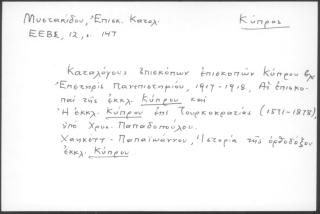 Μυστακίδου, Ἐπισκ. Κατάλ.
Κύπρος
ΕΕΒΣ, 12, σ. 147
Καταλόγους ἐπισκόπων ἐπισκοπῶν Κύπρου ἔχει
Ἐπετηρὶς Πανεπιστημίου, 1917-1918, Αἱ ἐπισκο-
παὶ τῆς ἐκκλ. Κύπρου καὶ
Ἡ ἐκκλ. Κύπρου ἐπὶ Τουρκοκρατίας (1571-1878),
ὑπὸ Χρυσ. Παπαδοπούλου.
Χάκκεττ-Παπαϊωάννου, Ἱστορία τῆς ὀρθοδόξου
ἐκκλ. Κύπρου.